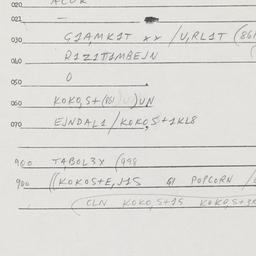 020 ALUK
021 —
030 GIAMKIT xx /U,RLIT (861
040 DIZITIMBEJN
050 0
060 KOKO,S+(861)U)UN
070 EJNDALI/KOKO,S+IKL8
900 TABOL3X (998
900 ((KOKOS+E,JIS GI POPCORN /
(CLN KOKO,S+IS KOKO,S+3K